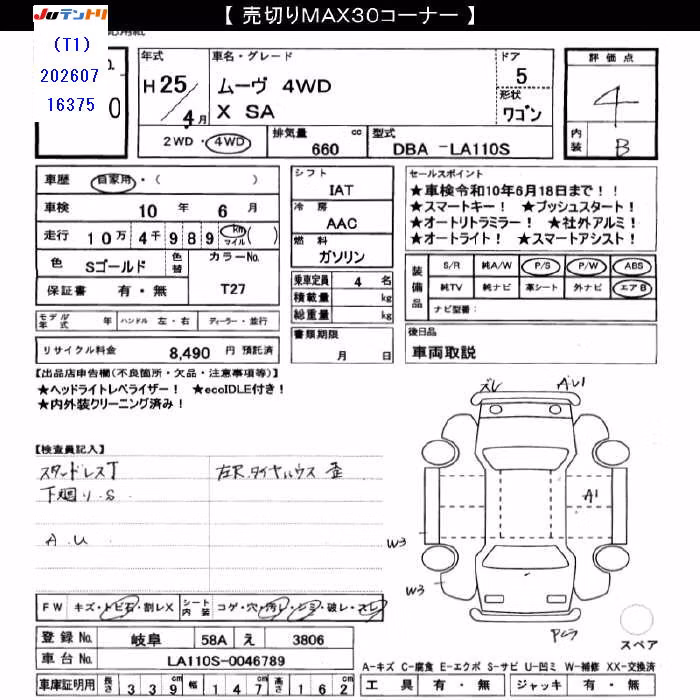 【 売切りMAX30コーナー 】
JUテントリ
(T1)
202607
16375
年式
H 25 / 4月
車名・グレード
ムーヴ 4WD
X SA
ドア
5
形状
ワゴン
評価点
4
内装
B
2WD・4WD
排気量 660 cc
型式 DBA -LA110S
車歴 自家用・( )
車検 10 年 6 月
走行 10万 4千 9 8 9 km マイル ( )
色 Sゴールド 色替
カラーNo. T27
保証書 有・無
モデル年式 年 ハンドル 左・右 ディーラー・並行
リサイクル料金 8,490 円 預託済
シフト
IAT
冷房
AAC
燃料
ガソリン
乗車定員 4 名
積載量 kg
総重量 kg
書類期限
月 日
セールスポイント
★車検令和10年6月18日まで！！
★スマートキー！ ★プッシュスタート！
★オートリトラミラー！ ★社外アルミ！
★オートライト！ ★スマートアシスト！
装備品
S/R 純A/W P/S P/W ABS
純TV 純ナビ 革シート 外ナビ エアB
ナビ型番:
後日品
車両取説
【出品店申告欄(不良箇所・欠品・注意事項等)】
★ヘッドライトレベライザー！ ★ecoIDLE付き！
★内外装クリーニング済み！
【検査員記入】
スタッドレスT
下廻り.S
A.U
左R.タイヤハウス 歪
ズレ
A1
A1
W3
W3
スペア
FW キズ・トビ石・割レX
シート内装 コゲ・穴・汚レ・シミ・破レ・スレ
登録No. 岐阜 58A え 3806
車台No. LA110S-0046789
車庫証明用 長さ 3 3 9 cm 幅 1 4 7 cm 高さ 1 6 2 cm
A-キズ C-腐食 E-エクボ S-サビ U-凹ミ W-補修 XX-交換済
工具 有・無 ジャッキ 有・無